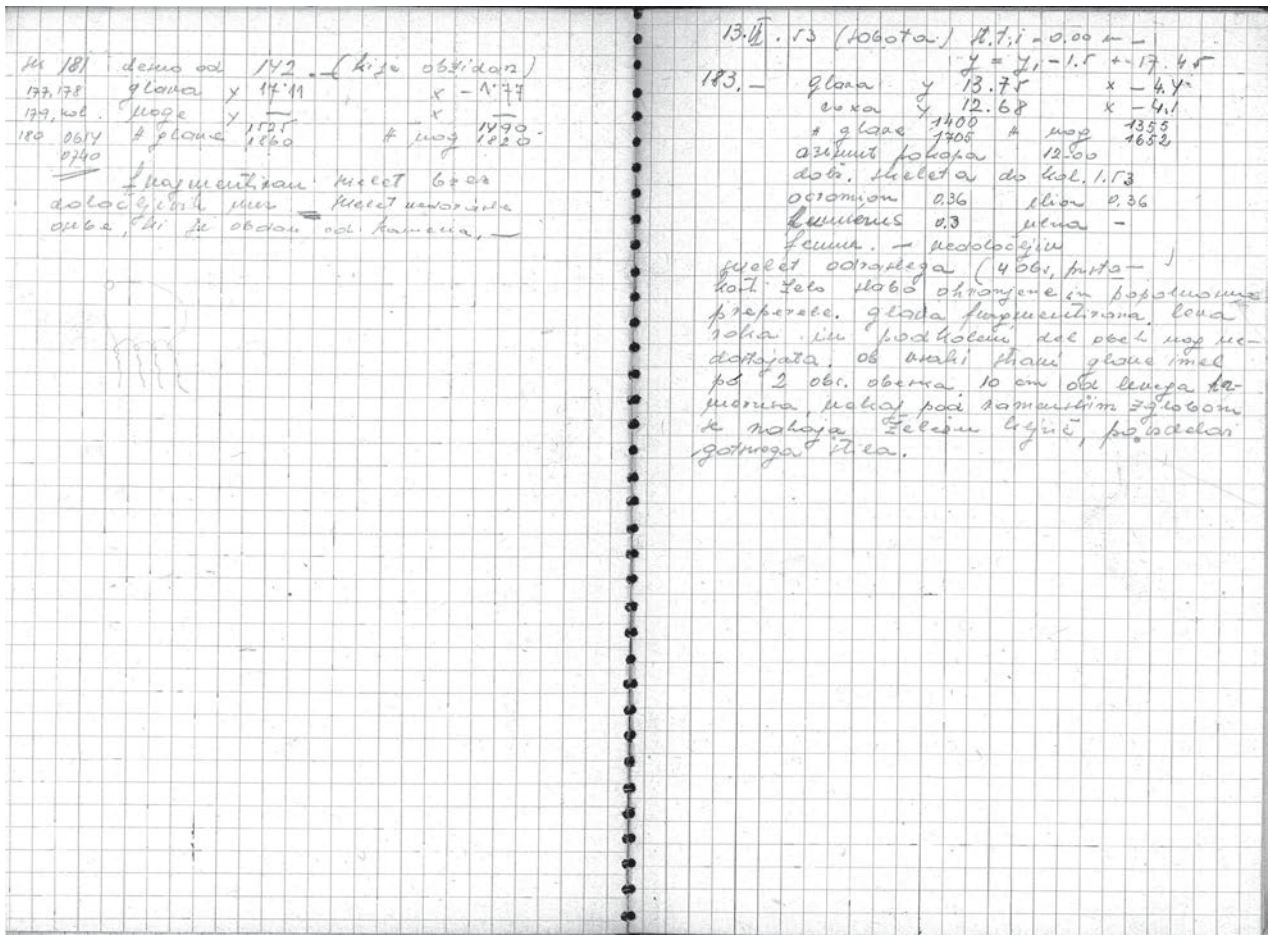 sk 181 desno od 142. — (ki je obzidan)
177, 178 glava y 17.11 x – 1.77
179, kol. noge y — x —
180 # glave 1525 1860 # nog 1490 1820
0614
0740
fragmentiran skelet brez
določljivih mer
osebe, ki je obdan od kamenja, —
13. . 53 (sobota)
y = y, – 1.5 + – 17.45
183. – glava y 13.75 x – 4.4
coxa y 12.68 x – 4.1
# glave 1400 1705 # nog 1355 1652
azimut pokopa 12–00
dolž. skeleta do kol. 1.53
acromion 0.36 ilion 0.36
humerus 0.3 ulna –
femur. – nedoločljiv
skelet odraslega (4 obs, prsta–
kosti zelo slabo ohranjene in popolnoma
preperele. glava fragmentirana, leva
roka in podkolen. del obeh nog ne-
dostajata. ob vsaki strani glave imel
po 2 obs. obenka, 10 cm od levega hu-
merusa, nekaj pod ramenskim zglobom
se nahaja železen ključ,
gotnega